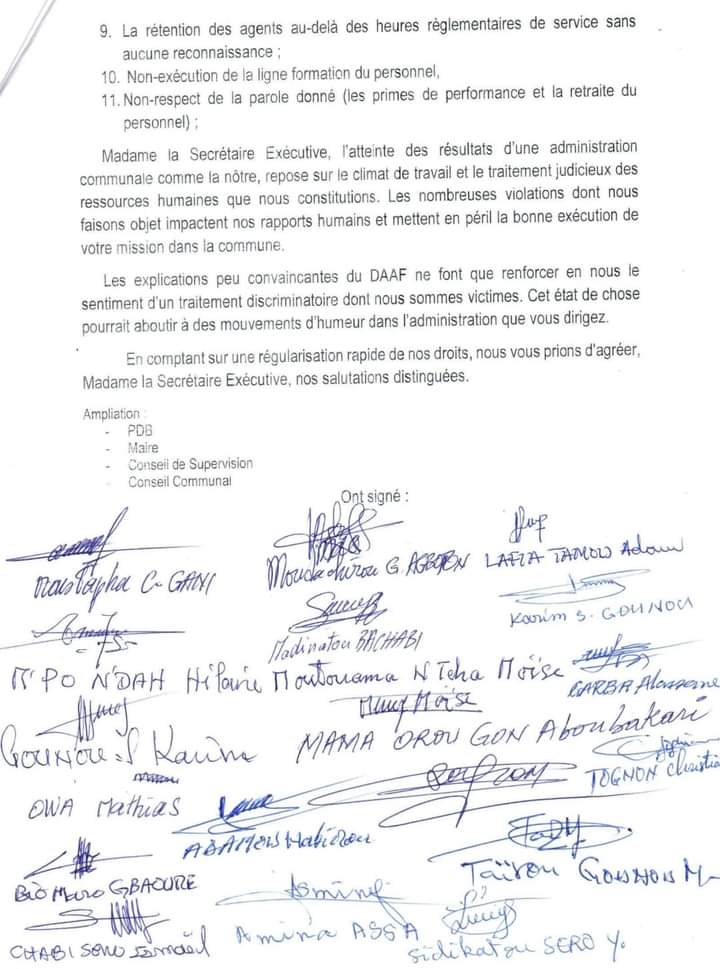 9. La rétention des agents au-delà des heures règlementaires de service sans
aucune reconnaissance ;
10. Non-exécution de la ligne formation du personnel,
11. Non-respect de la parole donné (les primes de performance et la retraite du
personnel) ;
Madame la Secrétaire Exécutive, l'atteinte des résultats d'une administration
communale comme la nôtre, repose sur le climat de travail et le traitement judicieux des
ressources humaines que nous constitutions. Les nombreuses violations dont nous
faisons objet impactent nos rapports humains et mettent en péril la bonne exécution de
votre mission dans la commune.
Les explications peu convaincantes du DAAF ne font que renforcer en nous le
sentiment d'un traitement discriminatoire dont nous sommes victimes. Cet état de chose
pourrait aboutir à des mouvements d'humeur dans l'administration que vous dirigez.
En comptant sur une régularisation rapide de nos droits, nous vous prions d'agréer,
Madame la Secrétaire Exécutive, nos salutations distinguées.
Ampliation :
- PDB
- Maire
- Conseil de Supervision
- Conseil Communal
Ont signé :
Moustapha C. GANI
Moudachirou G. AGBOTON
LAFIA TAMOU Adam
Karim S. GOUNOU
Madinatou BACHABI
M'PO N'DAH Hilaire
Moutouama N'Tcha Moïse
BARBA Alassane
Moïse
GOUNOU S Karim
MAMA OROU GON Aboubakari
TOGNON Christia
OWA Mathias
Taïrou GOUNOU M
BIO GBAOURE
CHABI SERO Ismaël
Amina ASSA
Sidikatou SERO Y.